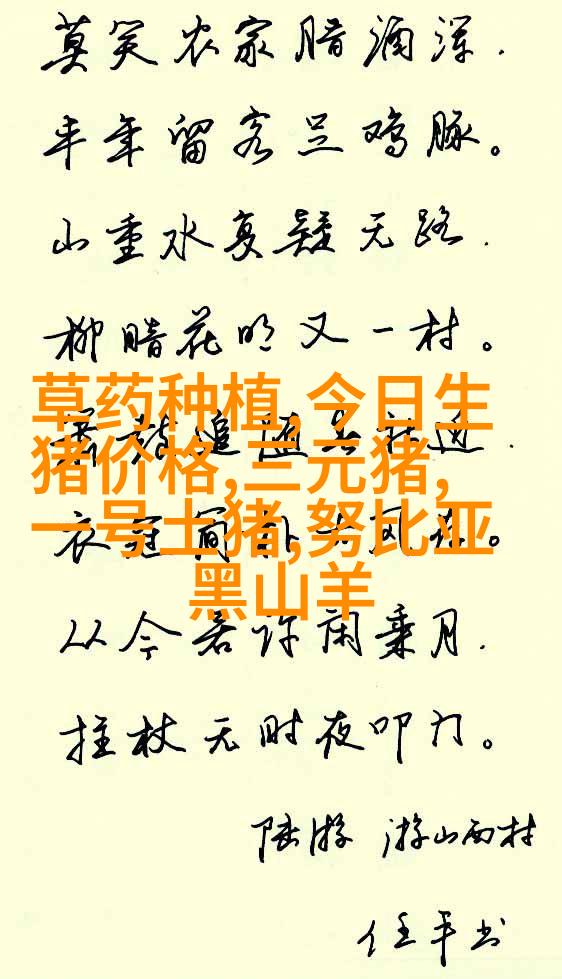 莫笑农家腊酒浑.
丰年留客足鸡豚。
山重水复疑无路.
柳暗花明又一村。
草药种植,今日生
追随春社近.
猪价格,三元猪,
一号土猪,努比亚
衣冠简朴古风存。
黑山羊
从今若许闲乘月.
拄杖无时夜叩门。
陆游 游山西村
任平书